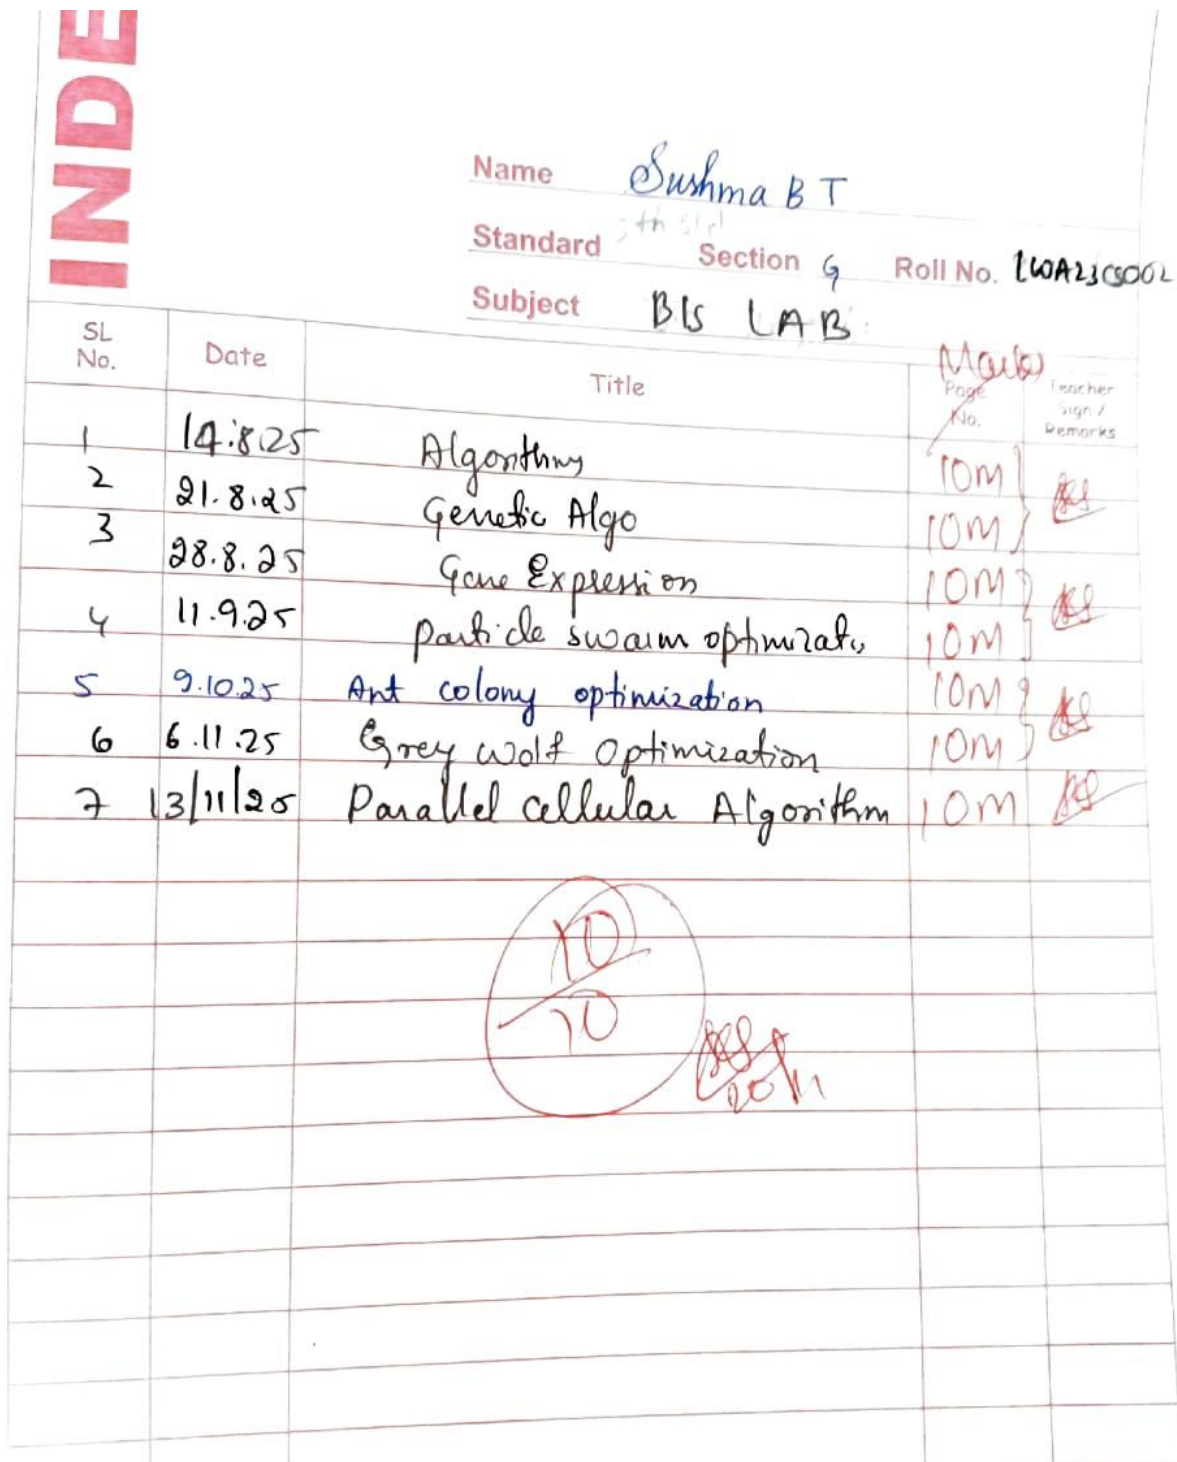 INDE
Name Sushma B T
Standard Section G Roll No.
Subject BIS LAB
SL No. Date Title Marks Page No. Teacher Sign / Remarks
1 14.8.25 Algorithms 10M
2 21.8.25 Genetic Algo 10M
3 28.8.25 Gene Expression 10M
4 11.9.25 Particle swarm optimizat 10M
5 9.10.25 Ant colony optimization 10M
6 6.11.25 Grey Wolf Optimization 10M
7 13/11/25 Parallel cellular Algorithm 10M
10
10
20/11